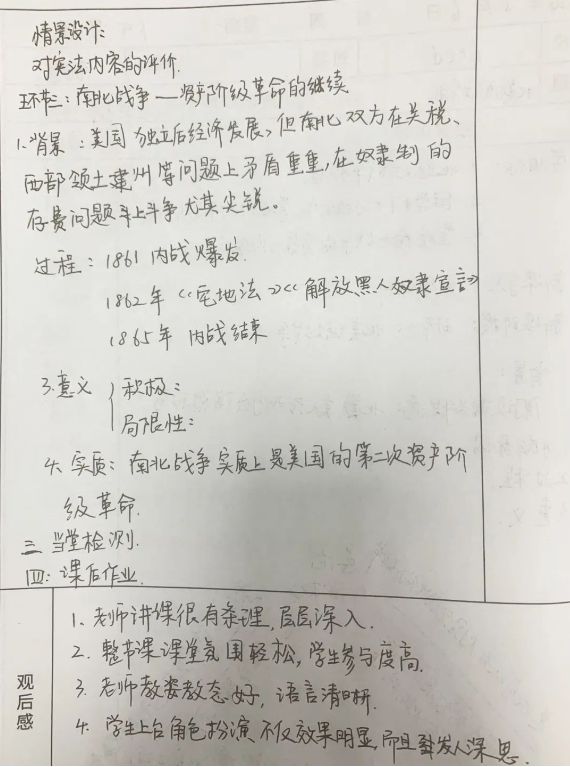 情景设计:
对宪法内容的评价.
环节三:南北战争——资产阶级革命的继续
1.背景:美国独立后经济发展,但南北双方在关税、
西部领土建州等问题上矛盾重重,在奴隶制的
存费问题斗上斗争尤其尖锐。
过程:1861 内战爆发.
1862年《宅地法》《解放黑人奴隶宣言》
1865年 内战结束
3.意义{积极:
局限性:
4.实质:南北战争实质上是美国的第二次资产阶
级革命.
三 当堂检测.
四:课后作业.
观后感
1.老师讲课很有条理,层层深入.
2.整节课课堂氛围轻松,学生参与度高.
3.老师教姿教态好,语言清晰.
4.学生上台角色扮演不仅效果明显,而且发人深思.